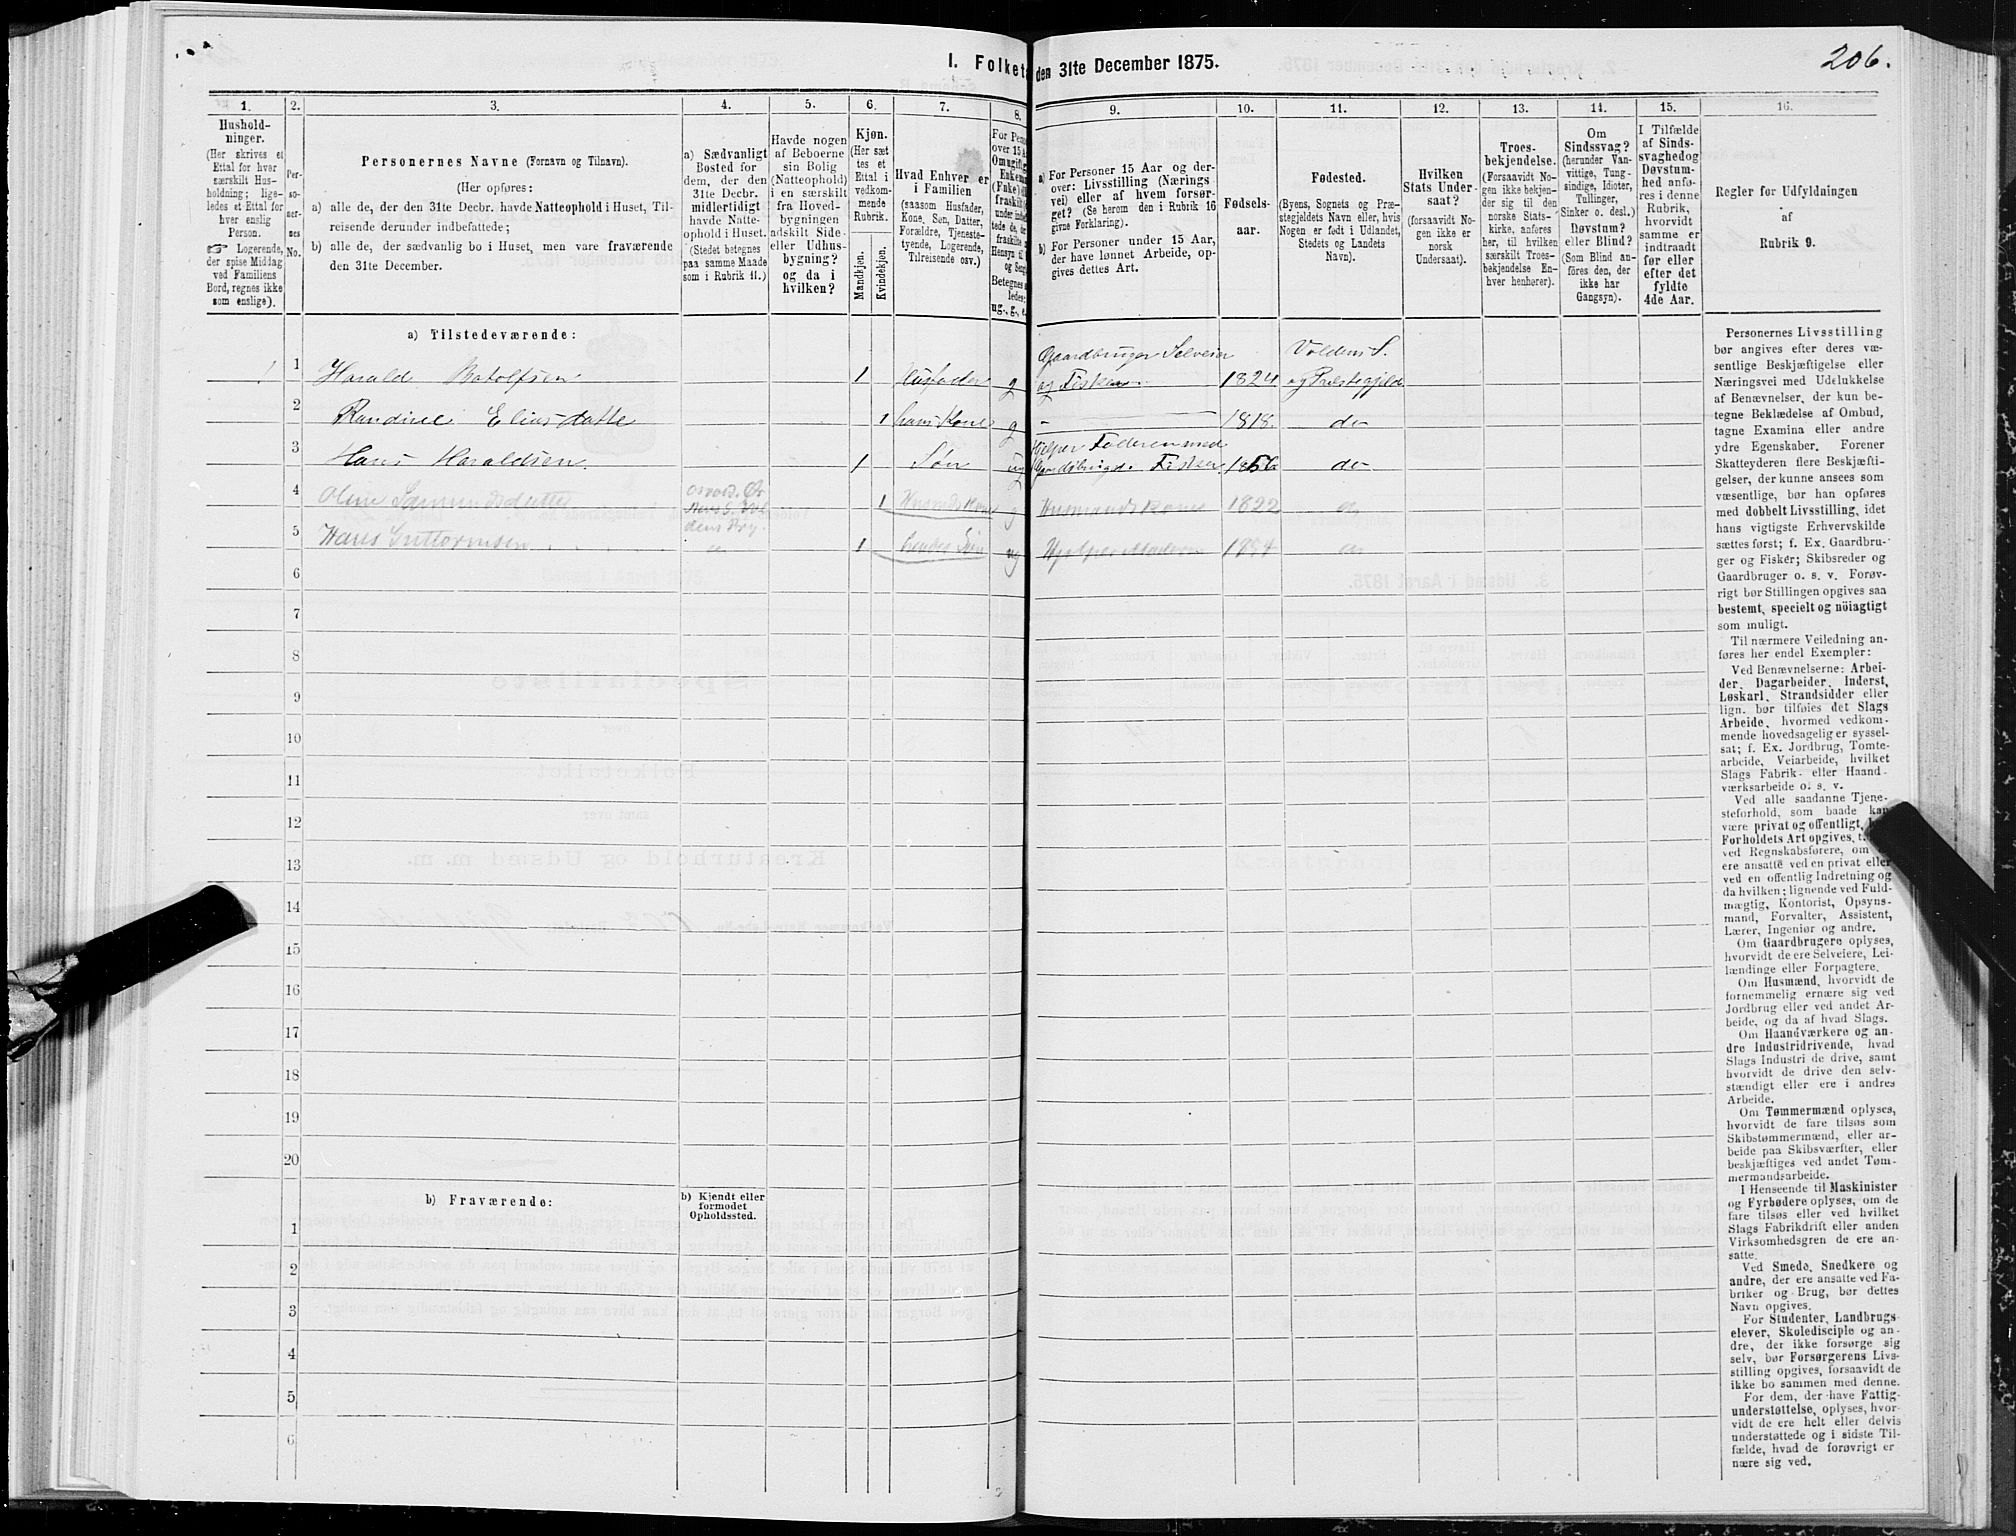 206.
I. Folket
den 31te December 1875.
1. 2. 3. 4. 5. 6. 7. 8. 9. 10. 11. 12. 13. 14. 15. 16.
Hushold-
ninger.
(Her skrives et
Ettal for hver
særskilt Hus-
holdning; lige-
ledes et Ettal for
hver enslig
Person.
☞ Logerende,
der spise Middag
ved Familiens
Bord, regnes ikke
som enslige).
Per-
so-
ner-
nes
No.
Personernes Navne (Fornavn og Tilnavn).
(Her opføres:
a) alle de, der den 31te Decbr. havde Natteophold i Huset, Til-
reisende derunder indbefattede;
b) alle de, der sædvanlig bo i Huset, men vare fraværende
den 31te December.
a) Sædvanligt
Bosted for
dem, der den
31te Decbr.
midlertidigt
havde Natte-
ophold i Huset.
(Stedet betegnes
paa samme Maade
som i Rubrik 11.)
Havde nogen
af Beboerne
sin Bolig
(Natteophold)
i en særskilt
fra Hoved-
bygningen
adskilt Side-
eller Udhus-
bygning?
og da i
hvilken?
Kjøn.
(Her sæt
tes et
Ettal i
vedkom-
mende
Rubrik.
Mandkjøn.
Kvindekjøn.
Hvad Enhver er
i Familien
(saasom Husfader,
Kone, Søn, Datter,
Forældre, Tjeneste-
tyende, Logerende,
Tilreisende osv.)
For Pers
over 15 Aa
Om ugift
Enkem
(Enke)
fraskilt
under indbe
tede de,
fraskilte
Hensyn til
og Seng
Betegnes
ledes:
ug., g., e.
a) For Personer 15 Aar og der-
over: Livsstilling (Nærings
vei) eller af hvem forsør-
get? (Se herom den i Rubrik 16
givne Forklaring).
b) For Personer under 15 Aar,
der have lønnet Arbeide, op-
gives dettes Art.
Fødsels-
aar.
Fødested.
(Byens, Sognets og Præ-
stegjeldets Navn eller, hvis
Nogen er født i Udlandet,
Stedets og Landets
Navn).
Hvilken
Stats Under-
saat?
(forsaavidt No-
gen ikke er
norsk
Undersaat).
Troes-
bekjendelse.
(Forsaavidt No-
gen ikke bekjen-
der sig til den
norske Stats-
kirke, anføres
her, til hvilken
særskilt Troes-
bekjendelse En-
hver henhører).
Om
Sindssvag?
(herunder Van-
vittige, Tung-
sindige, Idioter,
Tullinger,
Sinker o. desl.)
Døvstum?
eller Blind?
(Som Blind an-
føres den, der
ikke har
Gangsyn).
I Tilfælde
af Sinds-
svaghedog
Døvstum-
hed anfø-
res i denne
Rubrik,
hvorvidt
samme er
indtraadt
før eller
efter det
fyldte
4de Aar.
Regler for Udfyldningen
af
Rubrik 9.
a) Tilstedeværende:
1 1 Harald Botolfsen 1 Husfader g Gaardbruger Selveier og Fisker 1824 Voldens S. og Præstegjeld
2 Randine Eliasdatte 1 hans Kone g - 1818. do
3 Hans Haraldsen 1 Søn ug Hjelper Faderen med Gaardsbruget. Fisker 1856 do
4 Oline Samundsdatter 1 Husmands Kone g Husmands Kone 1822 do
5 Hans Guttormsen do 1 hendes Søn ug Hjelper Moderen 1854 do
6
7
8
9
10
11
12
13
14
15
16
17
18
19
20
b) Fraværende:
b) Kjendt eller
formodet
Opholdssted.
1
2
3
4
5
6
Personernes Livsstilling
bør angives efter deres væ-
sentlige Beskjæftigelse eller
Næringsvei med Udelukkelse
af Benævnelser, der kun be-
tegne Beklædelse af Ombud,
tagne Examina eller andre
ydre Egenskaber. Forener
Skatteyderen flere Beskjæfti-
gelser, der kunne ansees som
væsentlige, bør han opføres
med dobbelt Livsstilling, idet
hans vigtigste Erhvervskilde
sættes først; f. Ex. Gaardbru-
ger og Fisker; Skibsreder og
Gaardbruger o. s. v. Forøv-
rigt bør Stillingen opgives saa
bestemt, specielt og nöiagtigt
som muligt.
Til nærmere Veiledning an-
føres her endel Exempler:
Ved Benævnelserne: Arbei-
der, Dagarbeider, Inderst,
Løskarl, Strandsidder eller
lign. bør tilføies det Slags
Arbeide, hvormed vedkom-
mende hovedsagelig er syssel-
sat; f. Ex. Jordbrug, Tomte-
arbeide, Veiarbeide, hvilket
Slags Fabrik- eller Haand-
værksarbeide o. s. v.
Ved alle saadanne Tjene-
steforhold, som baade kan
være privat og offentligt,
Forholdets Art opgives, t.
ved Regnskabsførere, om
ere ansatte ved en privat eller
ved en offentlig Indretning og
da hvilken; lignende ved Fuld-
mægtig, Kontorist, Opsyns-
mand, Forvalter, Assistent,
Lærer, Ingeniør og andre.
Om Gaardbrugere oplyses,
hvorvidt de ere Selveiere, Lei-
lændinge eller Forpagtere.
Om Husmænd, hvorvidt de
fornemmelig ernære sig ved
Jordbrug eller ved andet Ar-
beide, og da af hvad Slags.
Om Haandværkere og an-
dre Industridrivende, hvad
Slags Industri de drive, samt
hvorvidt de drive den selv-
stændigt eller ere i andres
Arbeide.
Om Tømmermænd oplyses,
hvorvidt de fare tilsøs som
Skibstømmermænd, eller ar-
beide paa Skibsværfter, eller
beskjæftiges ved andet Tøm-
mermandsarbeide.
I Henseende til Maskinister
og Fyrbødere oplyses, om de
fare tilsøs eller ved hvilket
Slags Fabrikdrift eller anden
Virksomhedsgren de ere an-
satte.
Ved Smede, Snedkere og
andre, der ere ansatte ved Fa-
briker og Brug, bør dettes
Navn opgives.
For Studenter, Landbrugs-
elever, Skoledisciple og an-
dre, der ikke forsørge sig
selv, bør Forsørgerens Livs-
stilling opgives, forsaavidt de
ikke bo sammen med denne.
For dem, der have Fattig-
understøttelse, oplyses, hvor-
vidt de ere helt eller delvis
understøttede og i sidste Til-
fælde, hvad de forøvrigt er
nære sig ved.